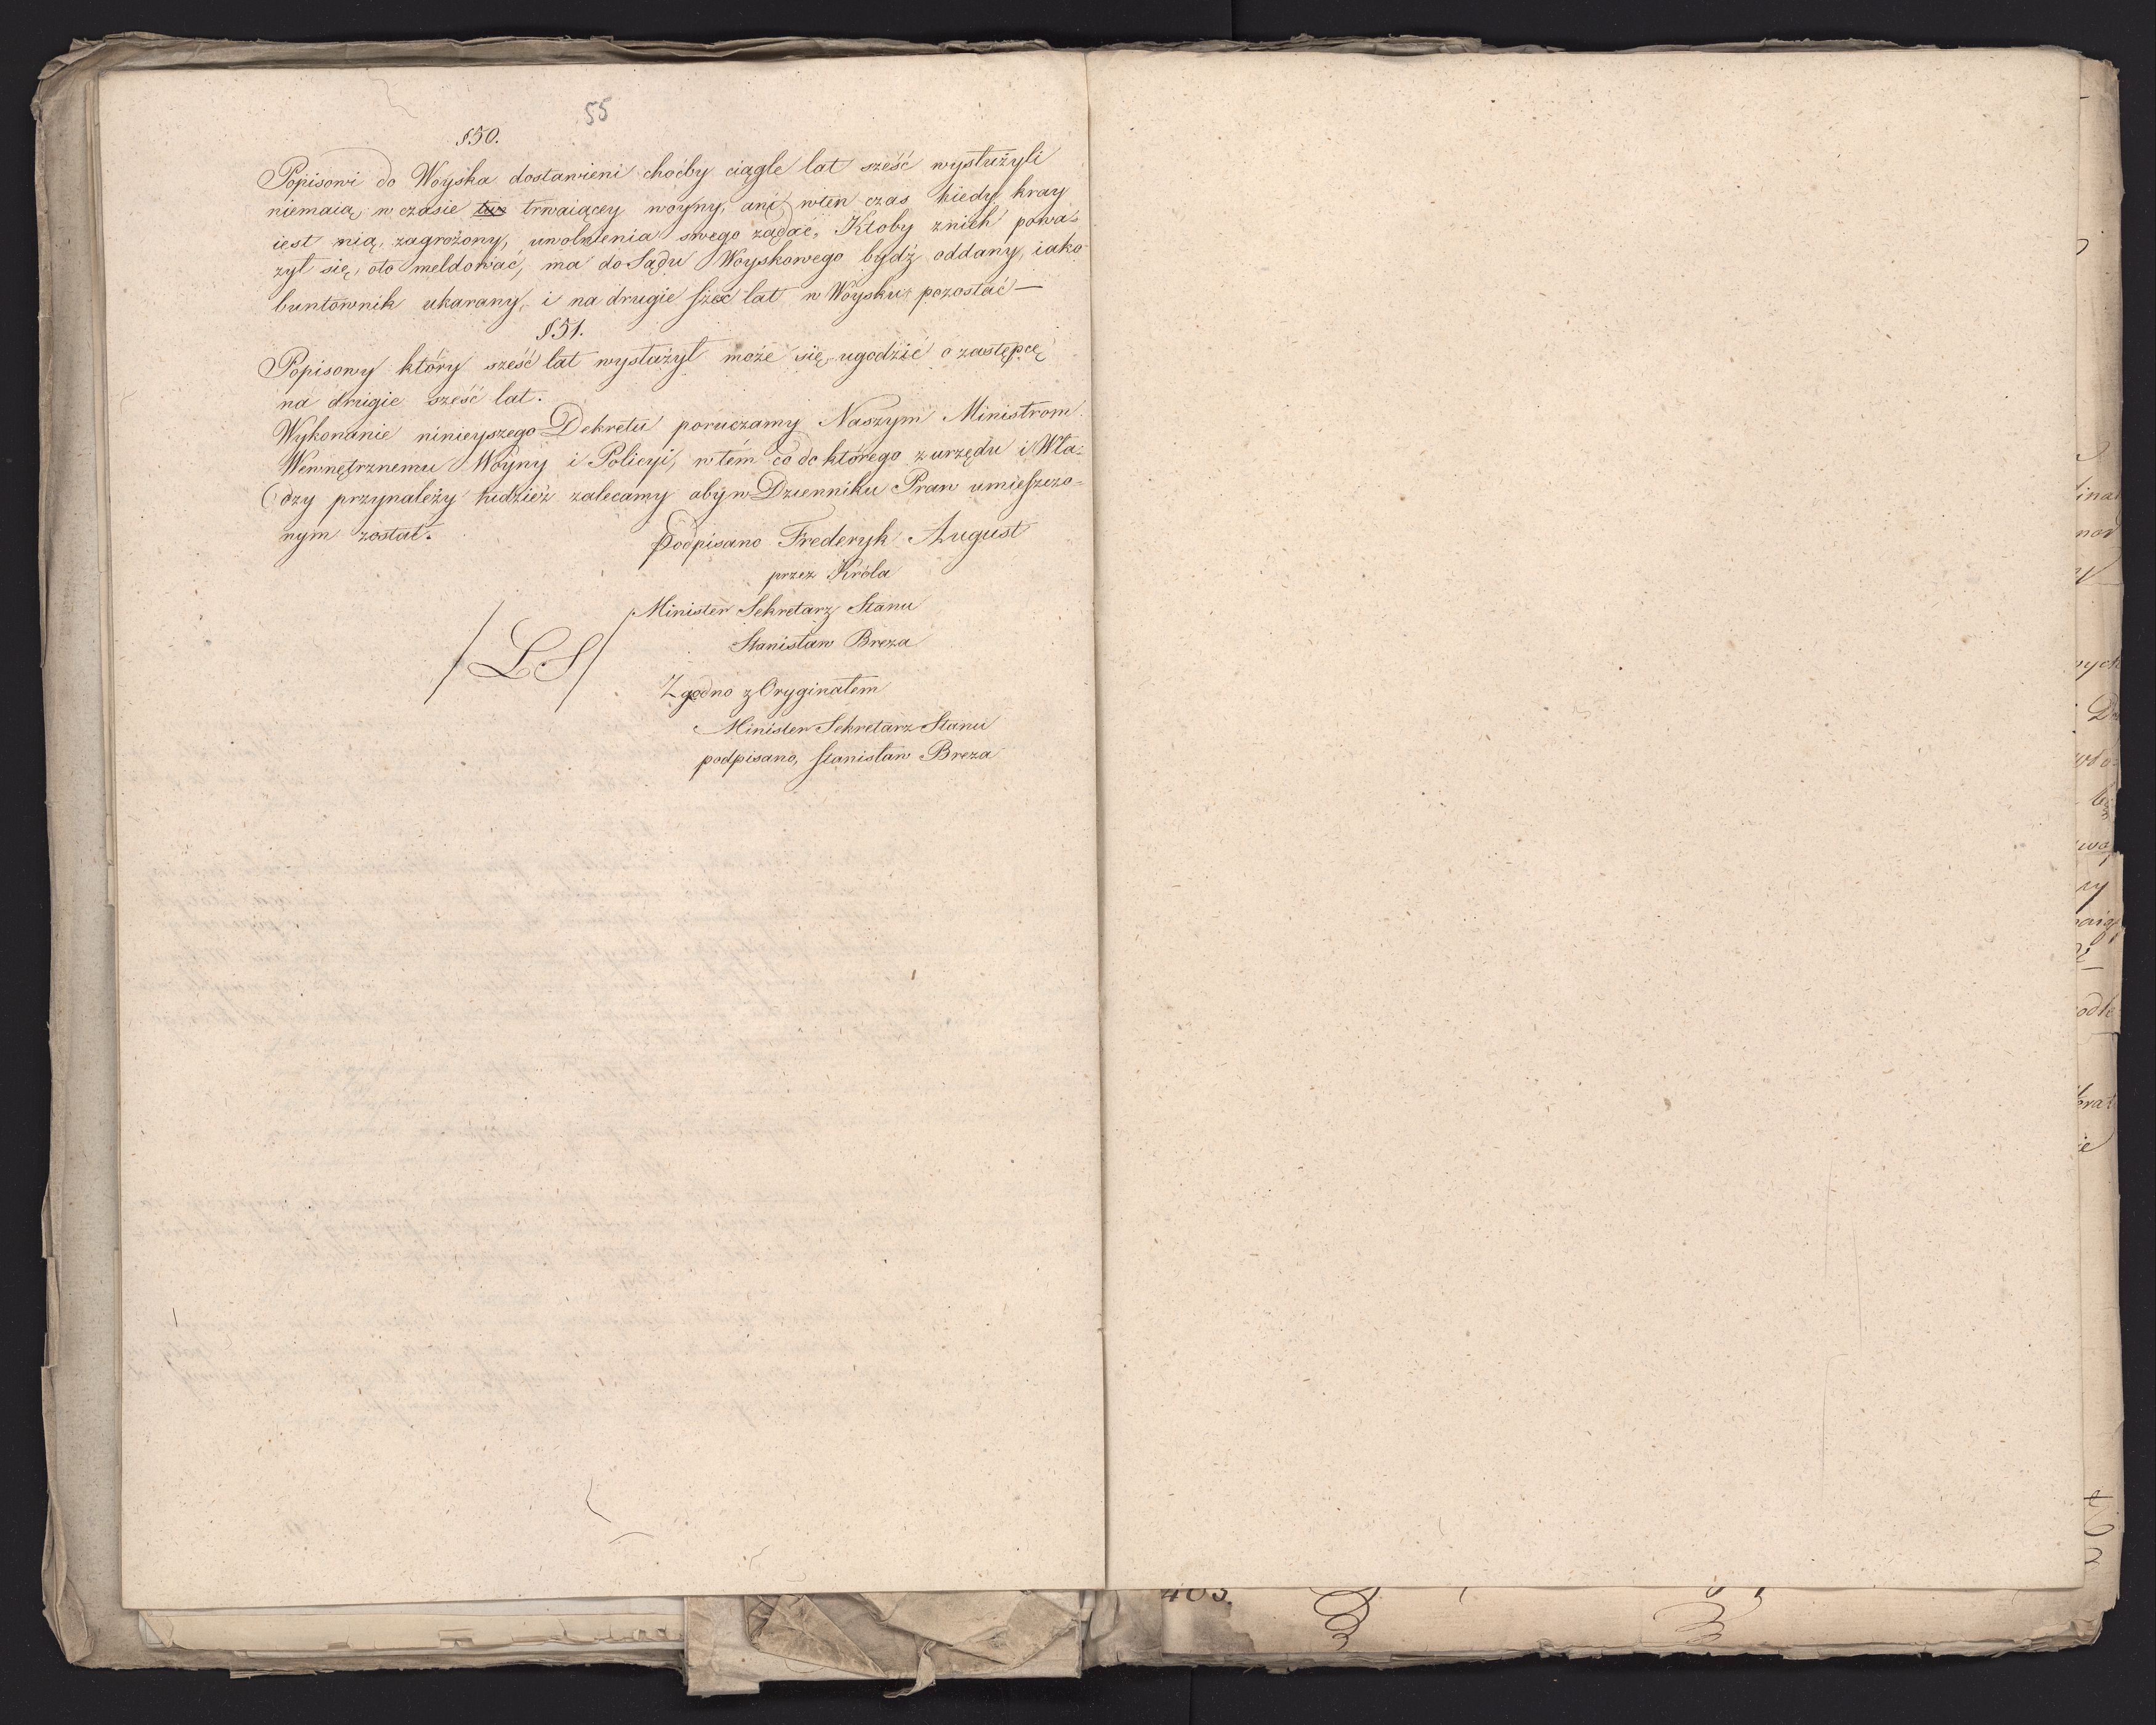 55
§50.
Popisowi do Woyska dostawieni choćby ciągle lat sześć wysłużyli
niemaią, w czasie trwaiącey woyny, ani wten czas kiedy kray
iest nią, zagrożony, uwolnienia swego żądać, Ktoby znich powa=
żył się, oto meldować, ma do Sądu Woyskowego bydź oddany, iako
buntownik ukarany, i na drugie sześć lat w Woysku pozostać —
§51.
Popisowy który sześć lat wysłużył może się ugodzić o zastępcę
na drugie sześć lat.
Wykonanie ninieyszego Dekretu poruczamy Naszym Ministrom
Wewnętrznemu Woyny i Policyi, wtém co do którego z urzędu i Wła=
dzy przynależy tudzież zalecamy aby w Dzienniku Praw umieszczo=
nym został.
Podpisano Frederyk August
przez Króla
Minister Sekretarz Stanu
Stanisław Breza
/LS/
Zgodno z Oryginałem
Minister Sekretarz Stanu
podpisano, Stanisław Breza
403.